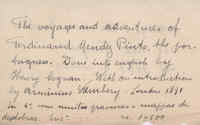 The voyages and adventures of
Ferdinand Mendez Pinto, the por-
tuguese. Done into english by
Henry Cogan. With an introduction
by Arminius Vambery. London 1891
in 4º con muitas gravuras e mappas